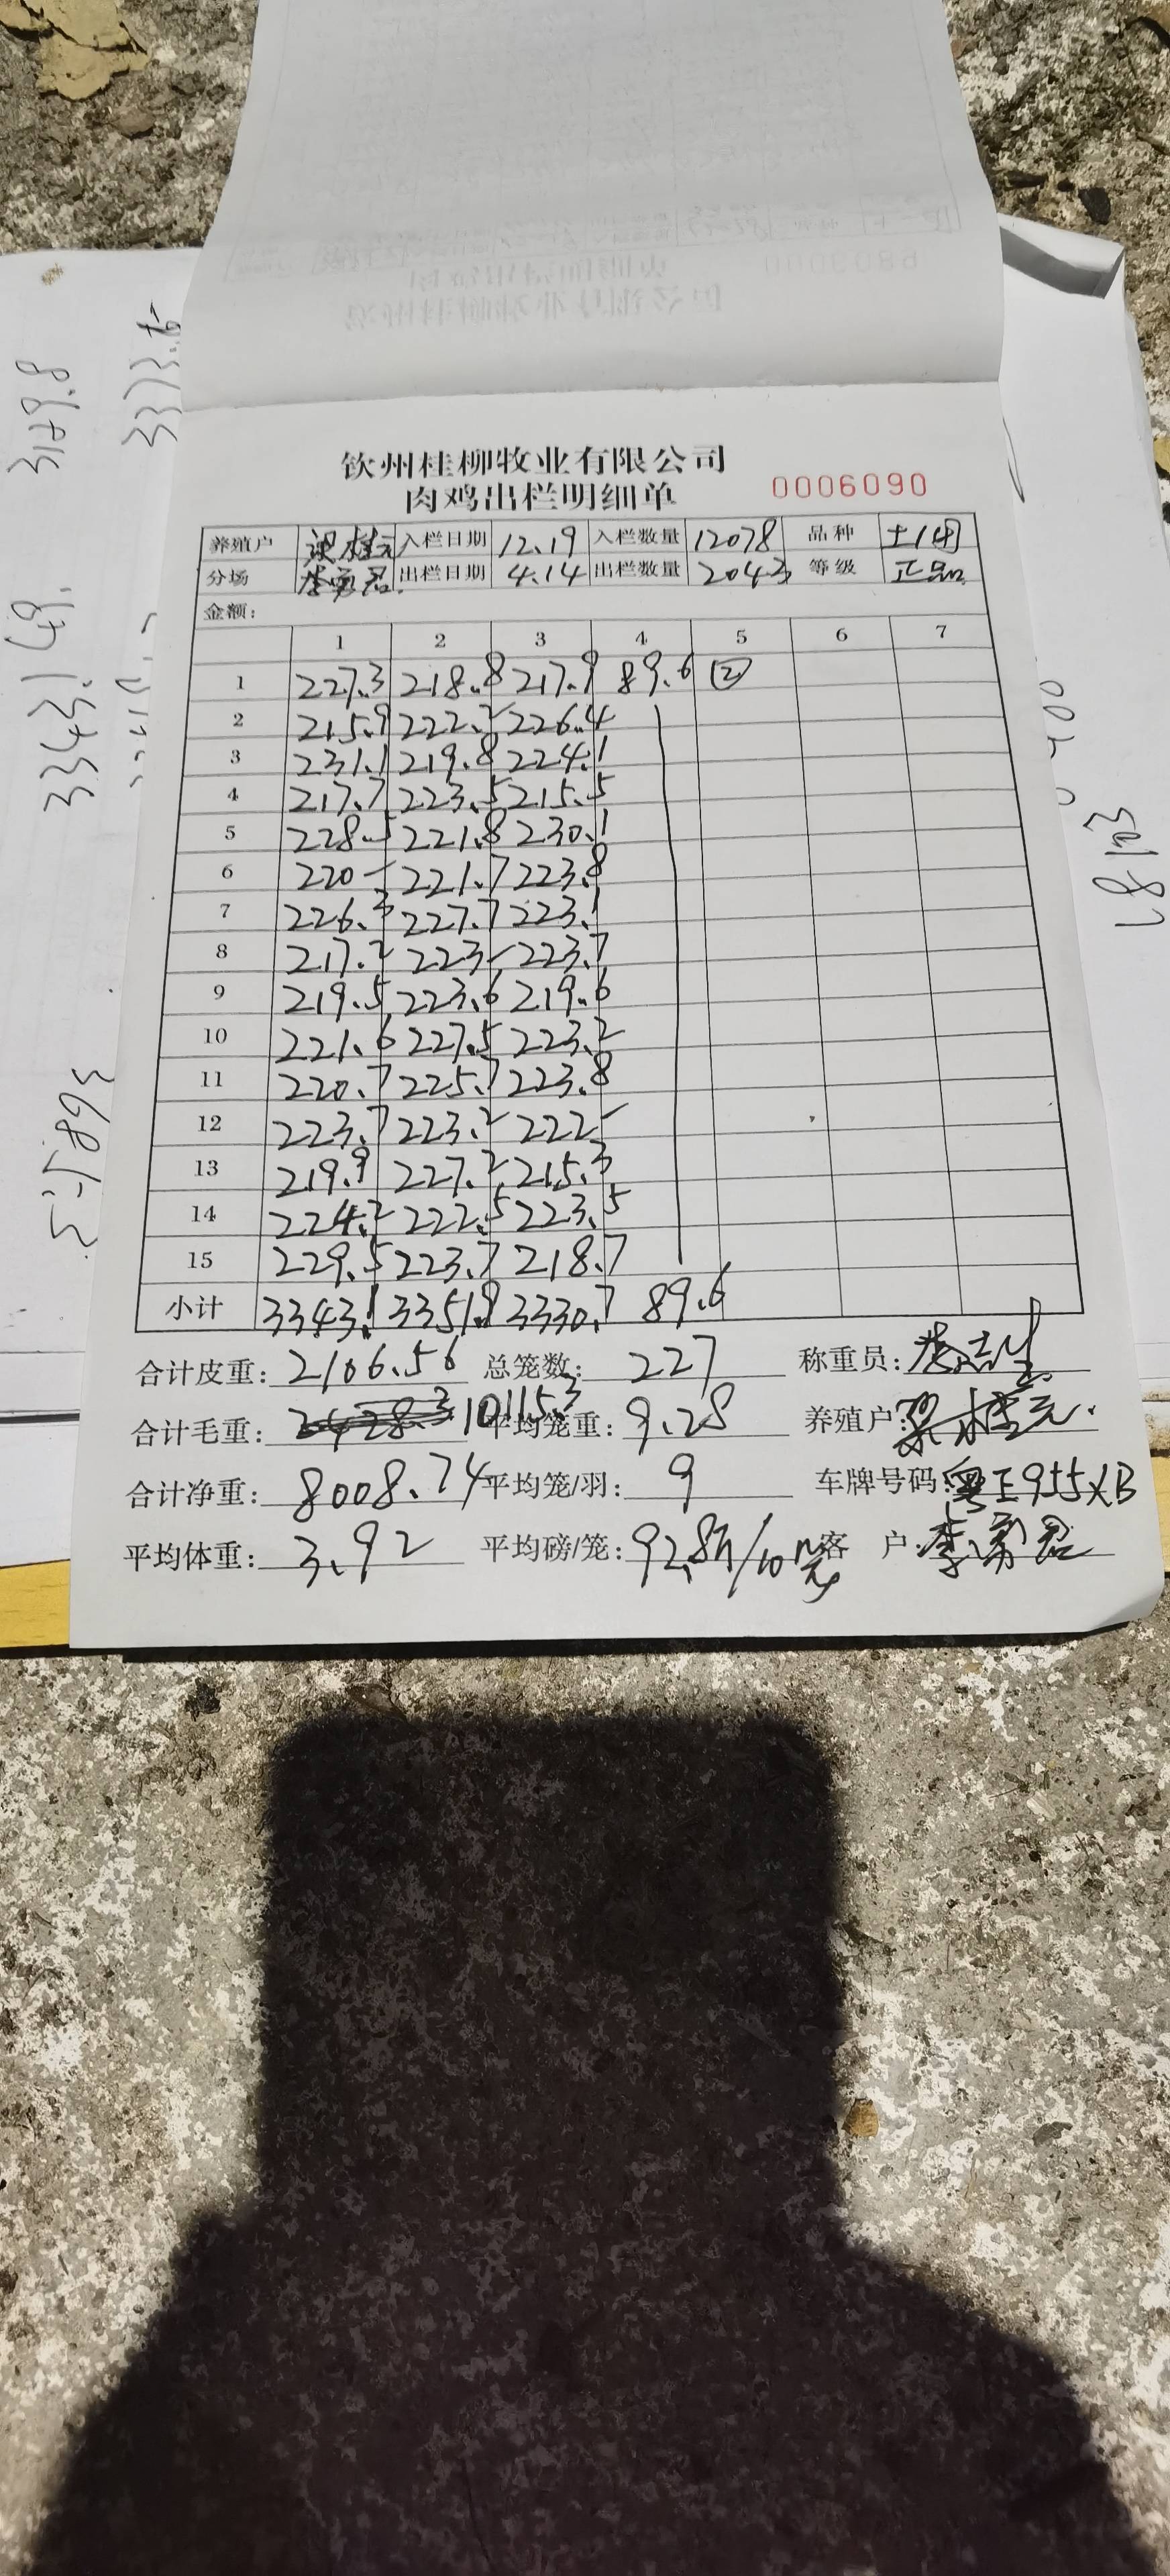 钦州桂柳牧业有限公司
肉鸡出栏明细单 0006090
养殖户 梁桂元 入栏日期 12.19 入栏数量 12078 品种 土1
分场 李勇君 出栏日期 4.14 出栏数量 2043 等级 正品
金额:
1 2 3 4 5 6 7
1 227.3 218.8 217.9 89.6 ②
2 215.9 222.2 226.4
3 231.1 219.8 224.1
4 217.7 223.5 215.5
5 228.5 221.8 230.1
6 220- 221.7 223.8
7 226.3 227.7 223.1
8 217.2 223- 223.7
9 219.5 223.6 219.6
10 221.6 227.5 223.2
11 220.7 225.7 223.8
12 223.7 223.2 222-
13 219.9 227.2 215.3
14 224.2 222.5 223.5
15 229.5 223.7 218.7
小计 3343.1 3351.9 3330.7 89.6
合计皮重: 2106.56 总笼数: 227 称重员:
合计毛重: 10115.3 平均笼重: 9.28 养殖户: 梁桂元.
合计净重: 8008.74 平均笼/羽: 9 车牌号码: 粤E955XB
平均体重: 3.92 平均磅/笼: 92.8斤/10只 客 户: 李勇君
3149.8
3373.6
3343.1
49.